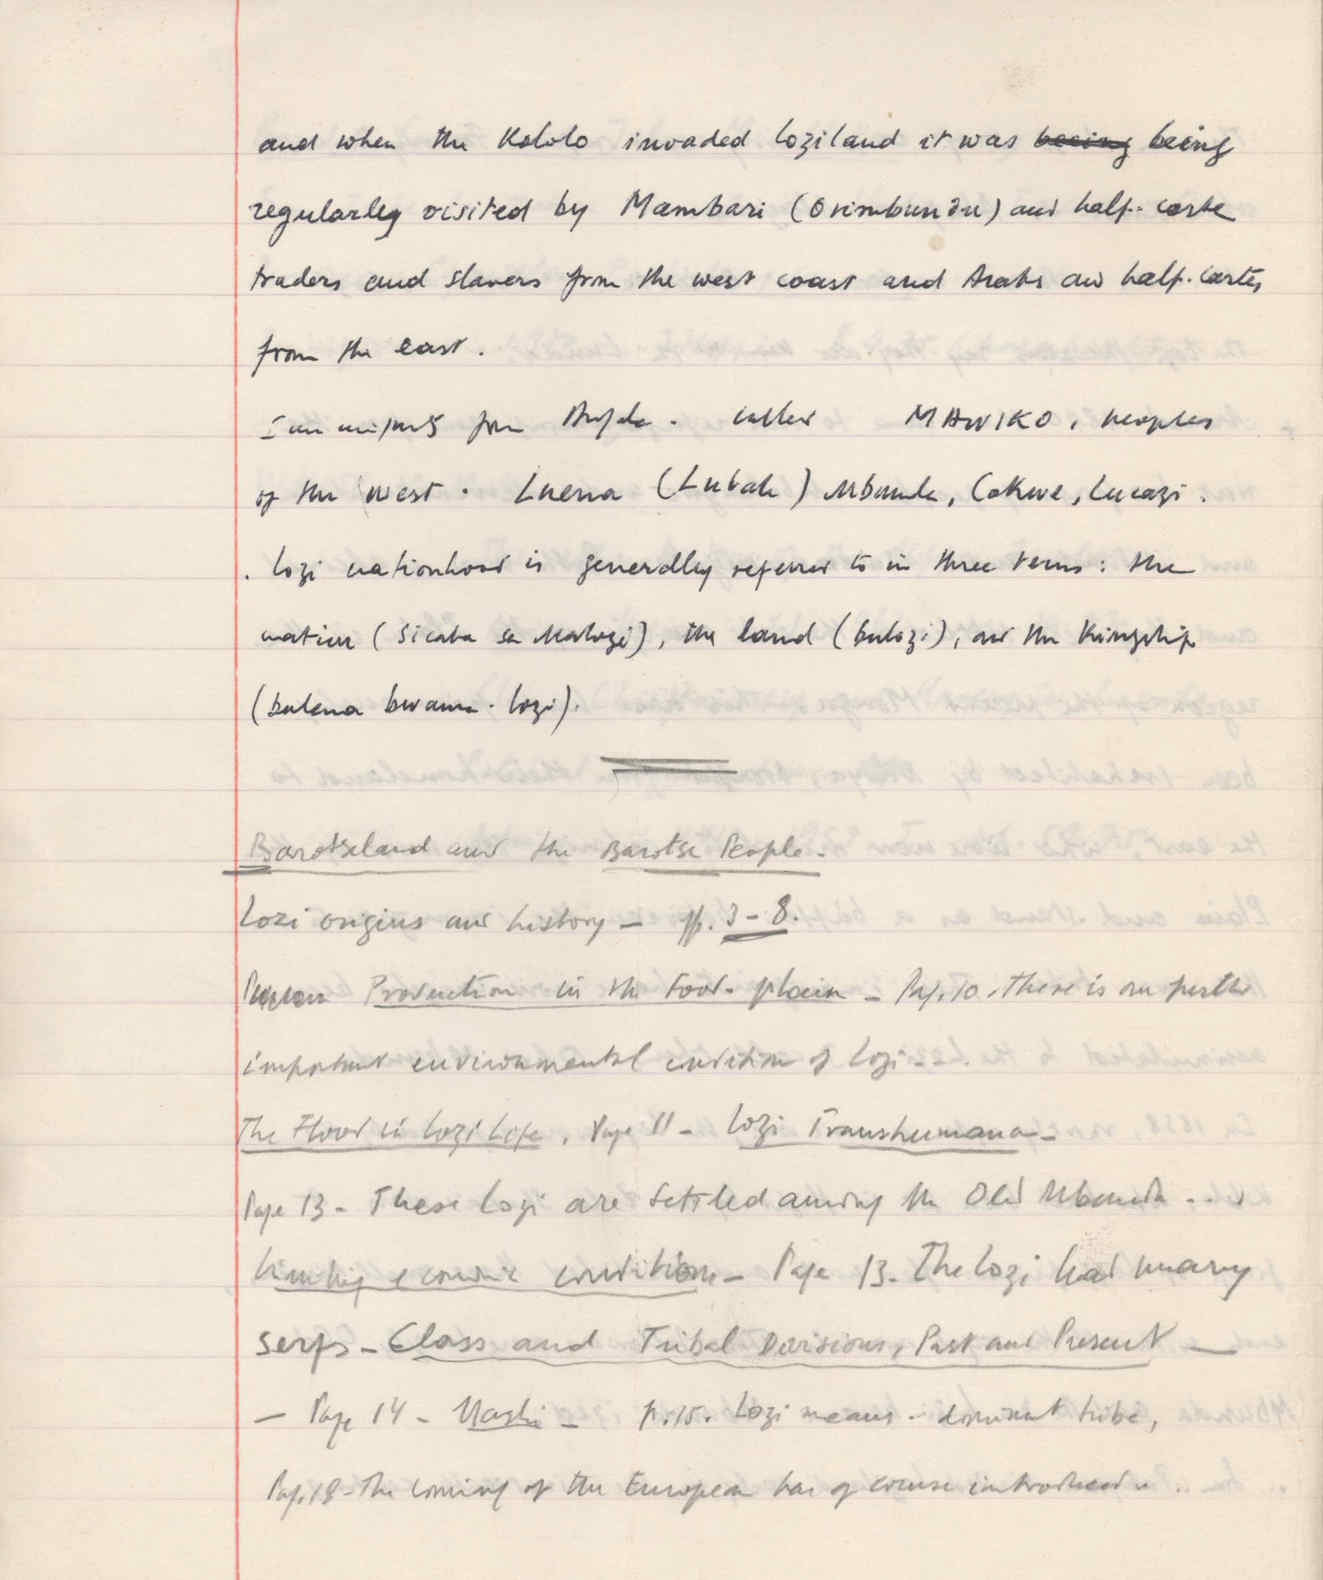 and when the Kololo invaded Loziland it was being
regularley visited by Mambari (Ovimbundu) and half-caste
traders and slavers from the west coast and Arabs and half-castes
from the east.
Immigrants from Angola. called MAWIKO, peoples
of the west. Luena (Lubale) Mbunda, Cokwe, Lucazi.
. Lozi nationhood is generally referred to in three terms: the
nation (Sicaba sa Malozi), the land (bulozi), and the Kingship
(bulena bwama-lozi).
Barotseland and the Barotse People.
Lozi origins and history - pp. 3-8.
Production in the food-plain - Page 10. There is one further
important environmental condition of Lozi---.
The Flood in Lozi Life, Page 11 - Lozi Transhumance-
Page 13 - These Lozi are settled among the Old Mbunda ...
Limiting economic conditions - Page 13. The Lozi had many
serfs - Class and Tribal Divisions, Past and Present -
- Page 14 - Mashi - p.15. Lozi means - dominant tribe,
Page 18 - The coming of the European has of course introduced ...